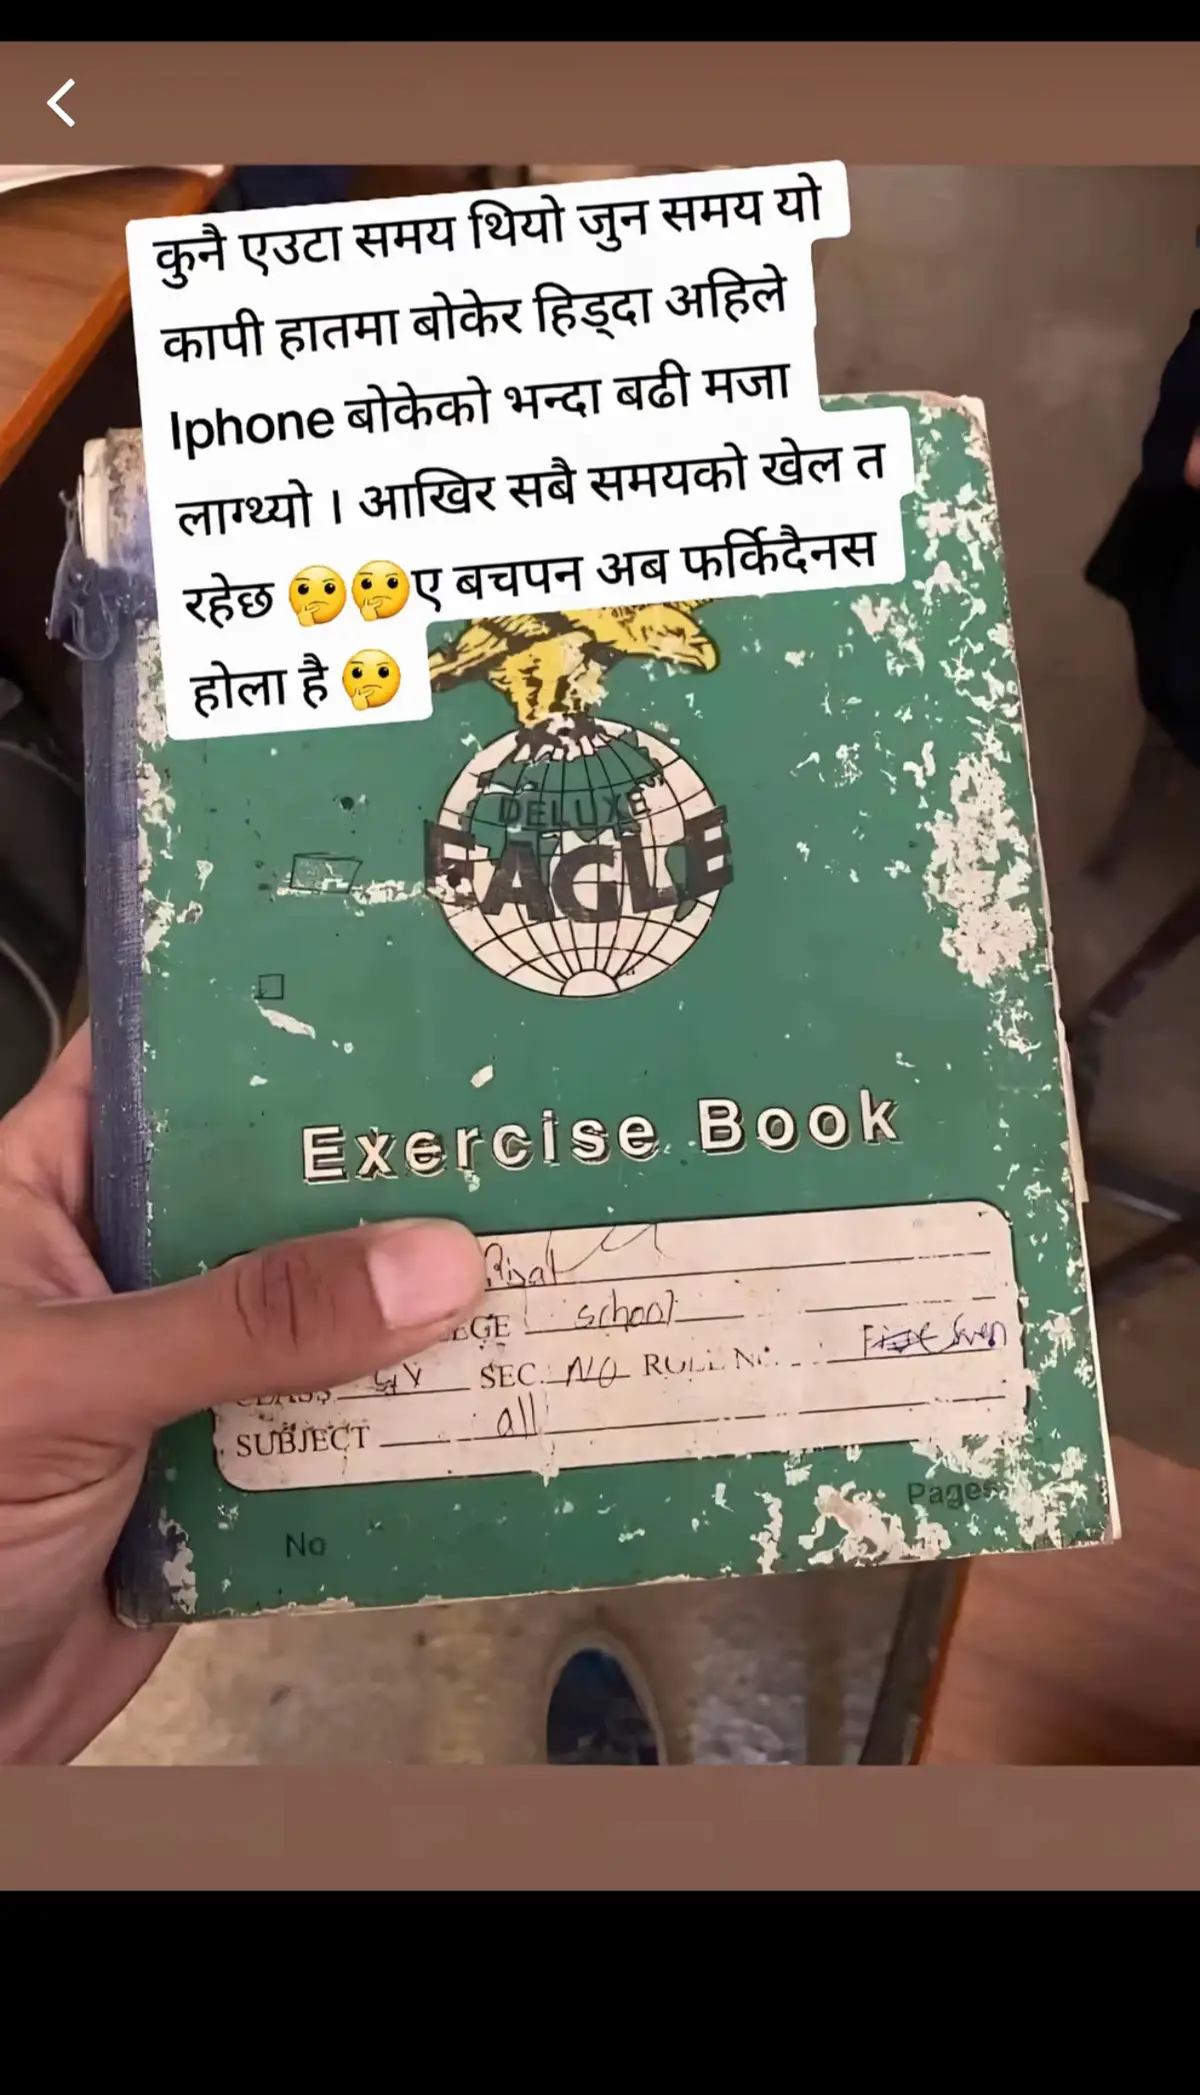 कुनै एउटा समय थियो जुन समय यो
कापी हातमा बोकेर हिड्दा अहिले
Iphone बोकेको भन्दा बढी मजा
लाग्थ्यो । आखिर सबै समयको खेल त
रहेछ 🤔🤔ए बचपन अब फर्किदैनस
होला है 🤔
DELUXE
EAGLE
Exercise Book
school
SEC. NO ROLL No.
SUBJECT all
No
Pages